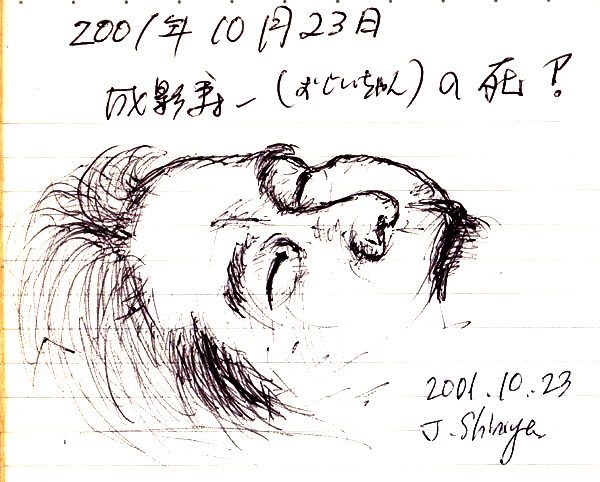 2001年10月23日
成影善一(おじいちゃん)の死!
2001.10.23
J. Shibuya